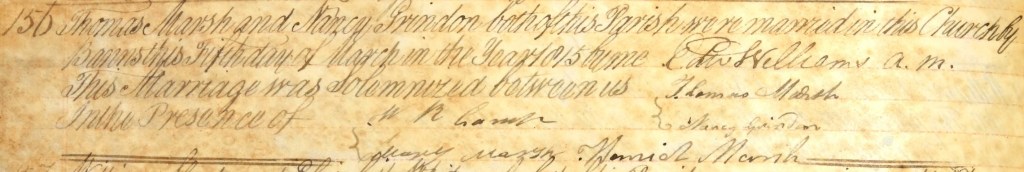 156 Thomas Marsh and Nancy Grindon both of this Parish were married in this Church by
Banns this Fifth day of March in the Year 1815 by me Edw Williams a. m.
This Marriage was Solemnized between us Thomas Marsh
In the Presence of Nancy Grindon
Mary Marsh Marsh